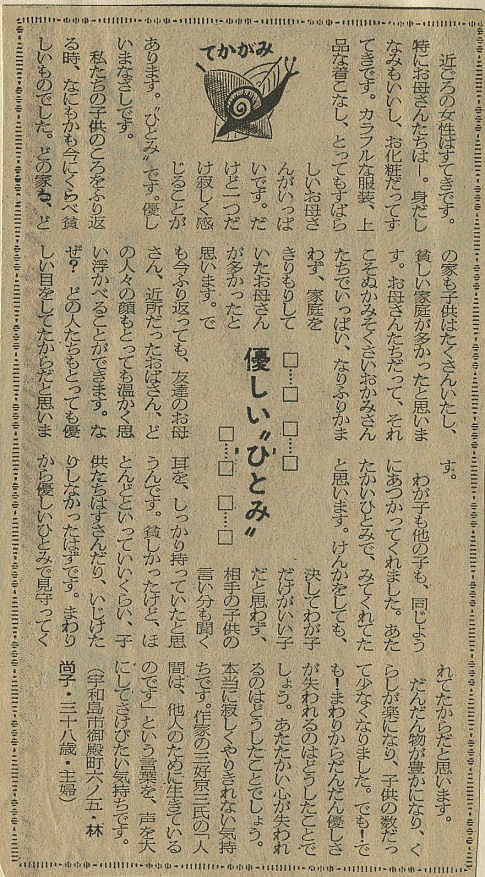 てかがみ
優しい〝ひとみ〟
近ごろの女性はすてきです。
特にお母さんたちはー。身だし
なみもいいし、お化粧だってす
てきです。カラフルな服装、上
品な着こなし、とってもすばら
しいお母さ
んがいっぱ
いです。だ
けど一つだ
け寂しく感
じることが
あります。〝ひとみ〟です。優し
いまなざしです。
私たちの子供のころをふり返
る時、なにもかも今にくらべ貧
しいものでした。どの家も、ど
の家も子供はたくさんいたし、
貧しい家庭が多かったと思いま
す。お母さんたちだって、それ
こそぬかみそくさいおかみさん
たちでいっぱい、なりふりかま
わず、家庭を
きりもりして
いたお母さん
が多かったと
思います。で
も今ふり返っても、友達のお母
さん、近所だったおばさん、ど
の人々の顔もとっても温かく思
い浮かべることができます。な
ぜ？　どの人たちもとっても優
しい目をしてたからだと思いま
す。
わが子も他の子も、同じよう
にあつかってくれました。あた
たかいひとみで、みてくれてた
と思います。けんかをしても、
決してわが子
だけがいい子
だと思わず、
相手の子供の
言い分も聞く
耳を、しっかり持っていたと思
うんです。貧しかったけど、ほ
とんどといっていいくらい、子
供たちはすさんだり、いじけた
りしなかったはずです。まわり
から優しいひとみで見守ってく
れてたからだと思います。
だんだん物が豊かになり、く
らしが楽になり、子供の数だっ
て少なくなりました。でも！で
も！まわりからだんだん優しさ
が失われるのはどうしたことで
しょう。あたたかい心が失われ
るのはどうしたことでしょう。
本当に寂しくやりきれない気持
ちです。作家の三好京三氏の「人
間は、他人のために生きている
のです」という言葉を、声を大
にしてさけびたい気持ちです。
（宇和島市御殿町六ノ五・林
尚子・三十八歳・主婦）